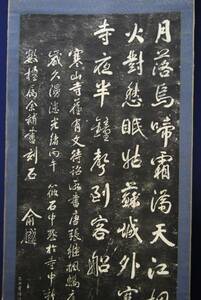 月落烏啼霜滿天江楓
火對愁眠姑蘇城外寒
寺夜半鐘聲到客船
寒山寺舊有文待詔所書唐張繼楓橋
歲久漫漶光緒丙午筱石中丞於寺中新
數楹屬余補書刻石
俞樾